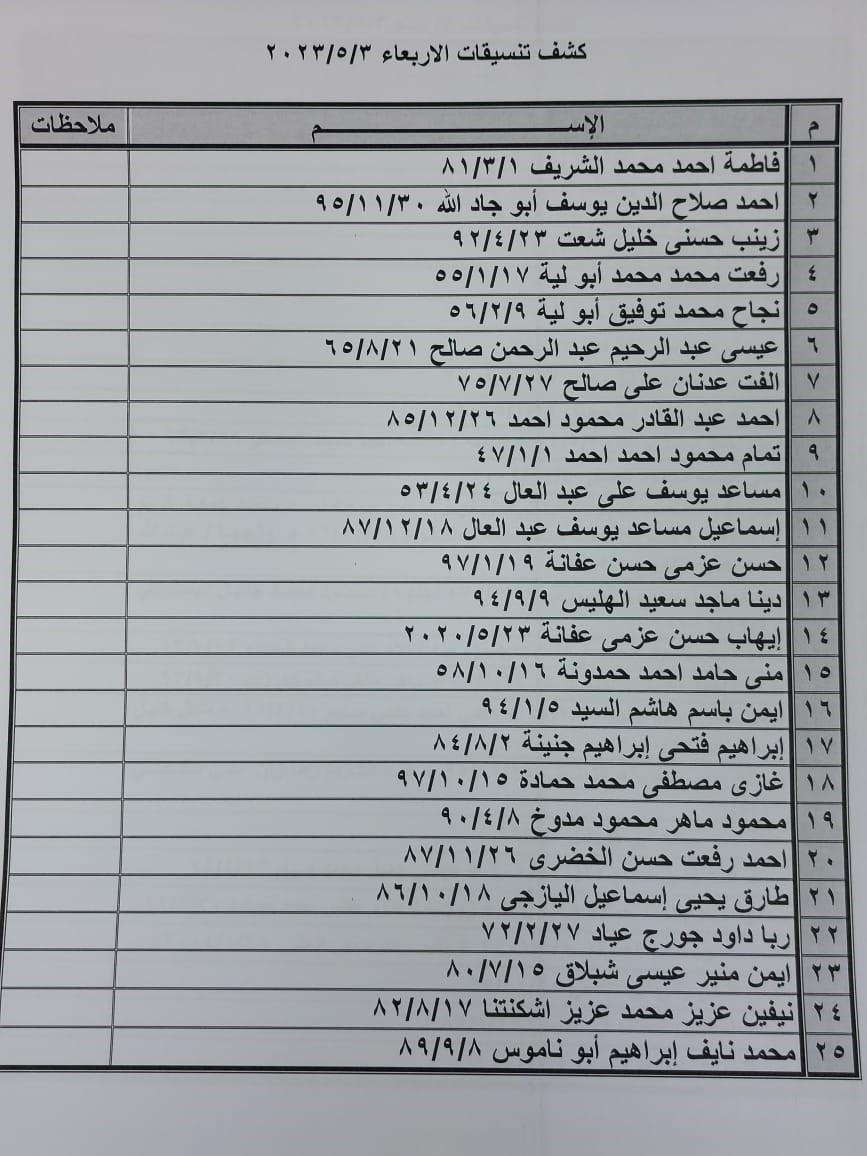 كشف تنسيقات الاربعاء ٢٠٢٣/٥/٣
م الإســـــــم ملاحظات
١ فاطمة احمد محمد الشريف ٨١/٣/١
٢ احمد صلاح الدين يوسف أبو جاد الله ٩٥/١١/٣٠
٣ زينب حسنى خليل شعت ٩٢/٤/٢٣
٤ رفعت محمد محمد أبو لية ٥٥/١/١٧
٥ نجاح محمد توفيق أبو لية ٥٦/٢/٩
٦ عيسى عبد الرحيم عبد الرحمن صالح ٦٥/٨/٢١
٧ الفت عدنان على صالح ٧٥/٧/٢٧
٨ احمد عبد القادر محمود احمد ٨٥/١٢/٢٦
٩ تمام محمود احمد احمد ٤٧/١/١
١٠ مساعد يوسف على عبد العال ٥٣/٤/٢٤
١١ إسماعيل مساعد يوسف عبد العال ٨٧/١٢/١٨
١٢ حسن عزمى حسن عفانة ٩٧/١/١٩
١٣ دينا ماجد سعيد الهليس ٩٤/٩/٩
١٤ إيهاب حسن عزمى عفانة ٢٠٢٠/٥/٢٣
١٥ منى حامد احمد حمدونة ٥٨/١٠/١٦
١٦ ايمن باسم هاشم السيد ٩٤/١/٥
١٧ إبراهيم فتحى إبراهيم جنينة ٨٤/٨/٢
١٨ غازى مصطفى محمد حمادة ٩٧/١٠/١٥
١٩ محمود ماهر محمود مدوخ ٩٠/٤/٨
٢٠ احمد رفعت حسن الخضرى ٨٧/١١/٢٦
٢١ طارق يحيى إسماعيل اليازجى ٨٦/١٠/١٨
٢٢ ربا داود جورج عياد ٧٢/٢/٢٧
٢٣ ايمن منير عيسى شبلاق ٨٠/٧/١٥
٢٤ نيفين عزيز محمد عزيز اشكنتنا ٨٢/٨/١٧
٢٥ محمد نايف إبراهيم أبو ناموس ٨٩/٩/٨